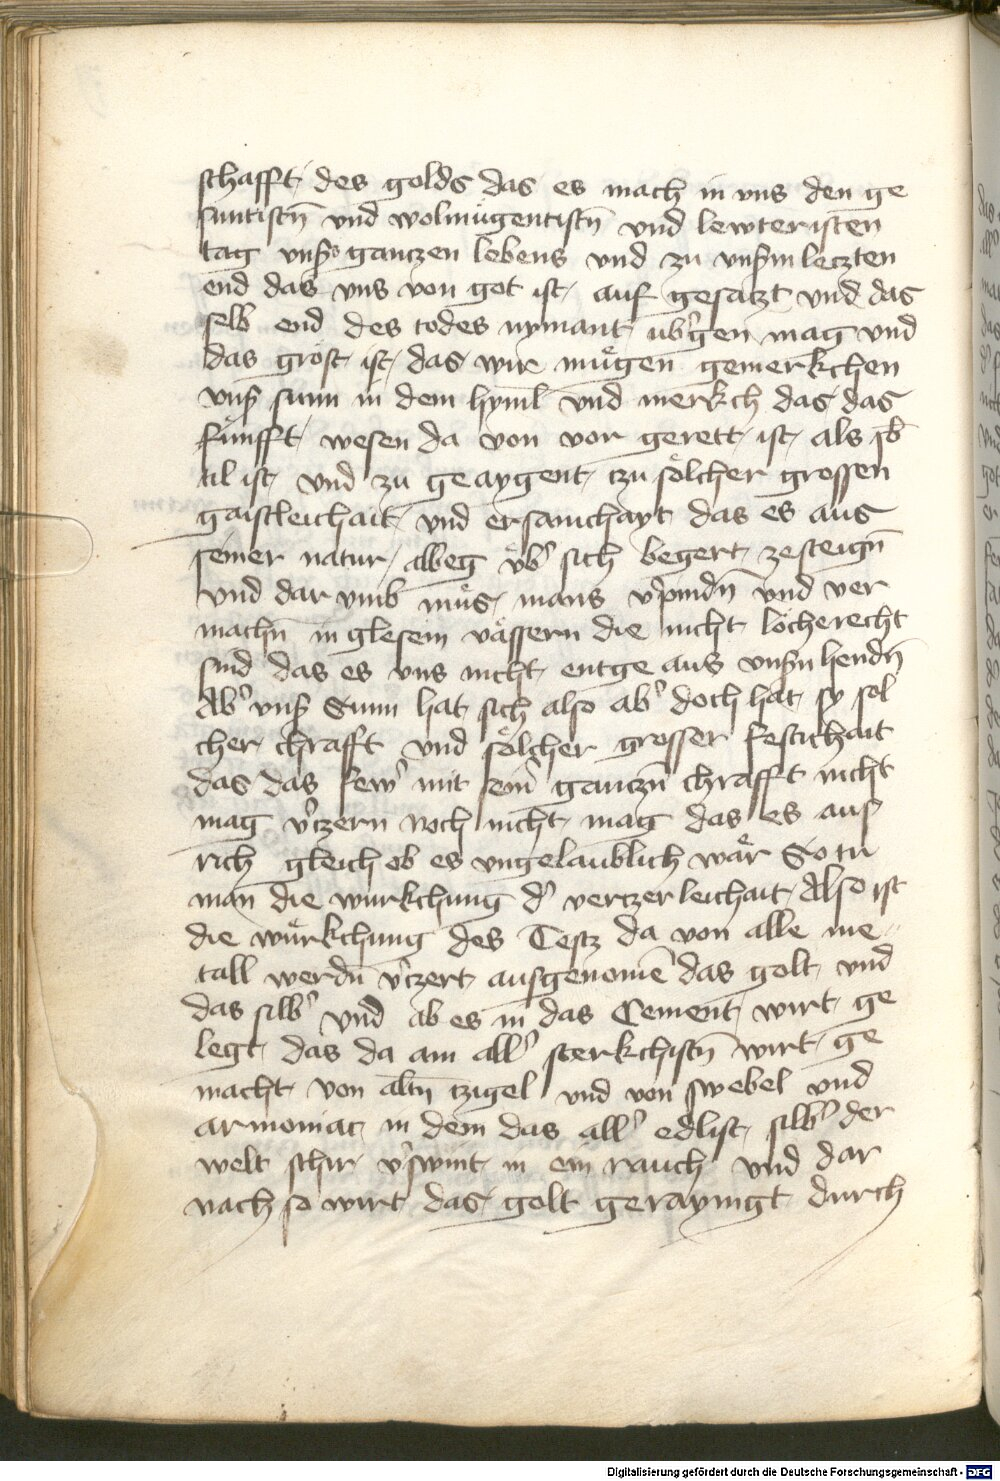 schafft des golds das es mach in vns den ge
suntistn̄ vnd wolmu̇gentistn̄ vnd lewteristen
tag vnsˢ ganczen lebens vnd zu vnsˢm leczten
end das vns von got ist auf gesaczt vnd das
selb end des todes nymant ub̾gen mag vnd
das gröst ist das wir mu̇gen gemerkchen
vnsˢ sunn in dem hyml̄ vnd merkch das das
fünfft wesen da von vor gerett ist als sub
til ist vnd zu geaygent czu sölcher grossen
gaistleichait vnd ersamchayt das es aus
seiner natur albeg vb̾ sich begert zesteign̄
vnd dar vmb mus mans v̾pindn̄ vnd ver
machn̄ in glesein vässern die nicht löcherecht
sind das es vns nicht entge aus vnsˢn hendn̄
Ab̾ vnsˢ Sunn hat sich also ab̾ doch hat sy sol
cher chrafft vnd sölcher grosser festichait
das das few̾ mit sein̾ ganczn̄ chrafft nicht
mag v̾czern noch nicht mag das es auf
rich gleich ob es vngelaublich wär So tu
man die wurkchung d̾ verczerleichait Also ist
die würkchung des Testz da von alle me
tall werdn̄ v̾czert ausgenomē das golt vnd
das silb̾ vnd ab es in das Cement wirt ge
legt das da am all̾ sterkchistn̄ wirt ge
macht von altn̄ czigel vnd von swebel vnd
armoniac in dem das all̾ edlist silb̾ der
welt schir v̾swint in ein rauch vnd dar
nach so wirt das golt gerayingt durch
Digitalisierung gefördert durch die Deutsche Forschungsgemeinschaft - DFG